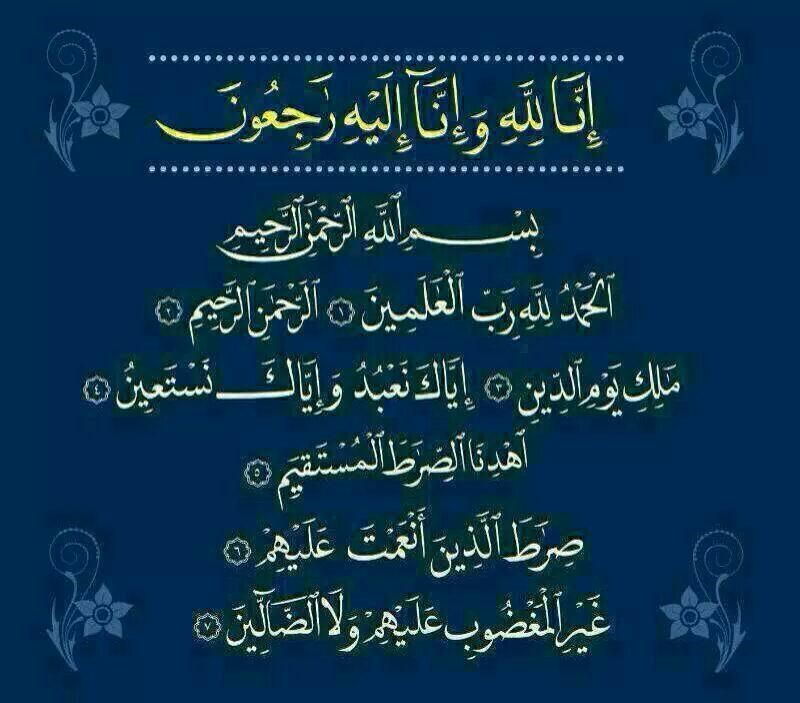 إِنَّا لِلَّهِ وَإِنَّآ إِلَيْهِ رَٰجِعُونَ
بِسْمِ ٱللَّهِ ٱلرَّحْمَٰنِ ٱلرَّحِيمِ
ٱلْحَمْدُ لِلَّهِ رَبِّ ٱلْعَٰلَمِينَ ١ ٱلرَّحْمَٰنِ ٱلرَّحِيمِ ٢
مَٰلِكِ يَوْمِ ٱلدِّينِ ٣ إِيَّاكَ نَعْبُدُ وَإِيَّاكَ نَسْتَعِينُ ٤
ٱهْدِنَا ٱلصِّرَٰطَ ٱلْمُسْتَقِيمَ ٥
صِرَٰطَ ٱلَّذِينَ أَنْعَمْتَ عَلَيْهِمْ ٦
غَيْرِ ٱلْمَغْضُوبِ عَلَيْهِمْ وَلَا ٱلضَّآلِّينَ ٧